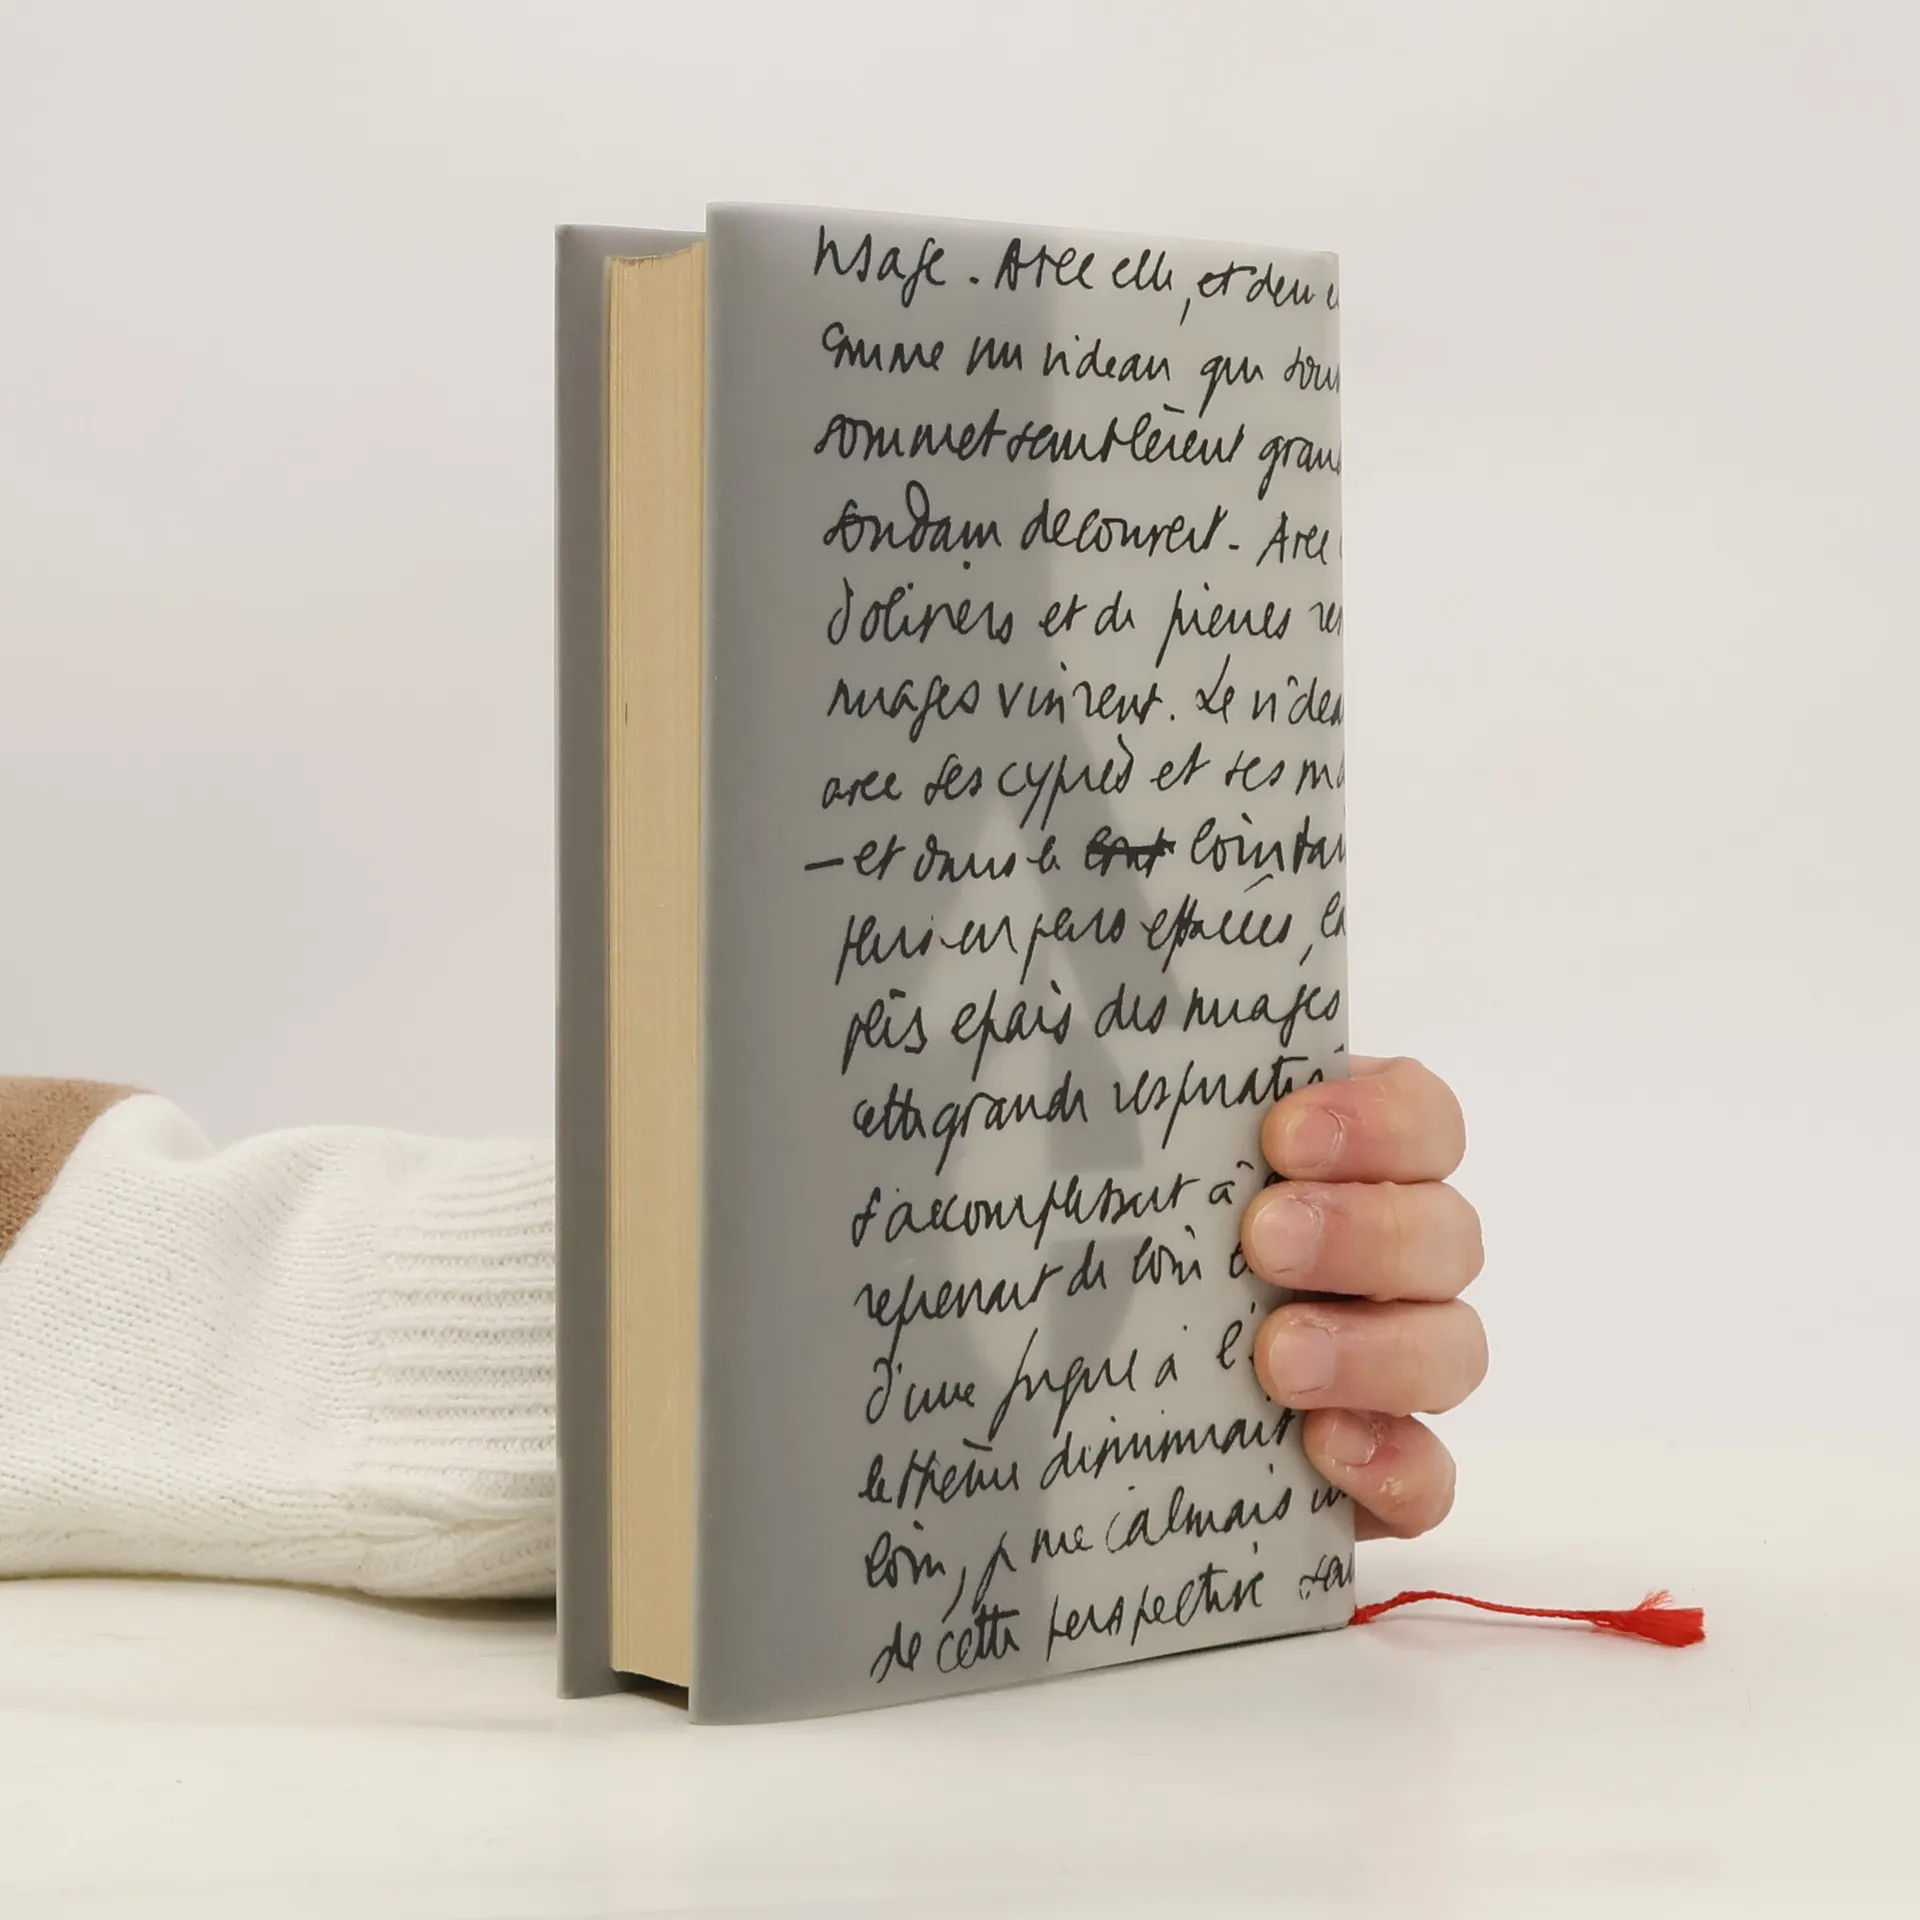 visage. Avec elle, et derr
comme un rideau qui
sommet semblèrent gran
soudain découvert. Avec
d'oliviers et de pierres
nuages vinrent. Le ridea
avec ses cyprès et ses
— et dans le lointai
effacées,
plis épais des nuages
cette grande respiratio
s'accomplissait à
reprenait de loin
d'une fugue à
le thème diminuait
loin, je me calmais
de cette perspective